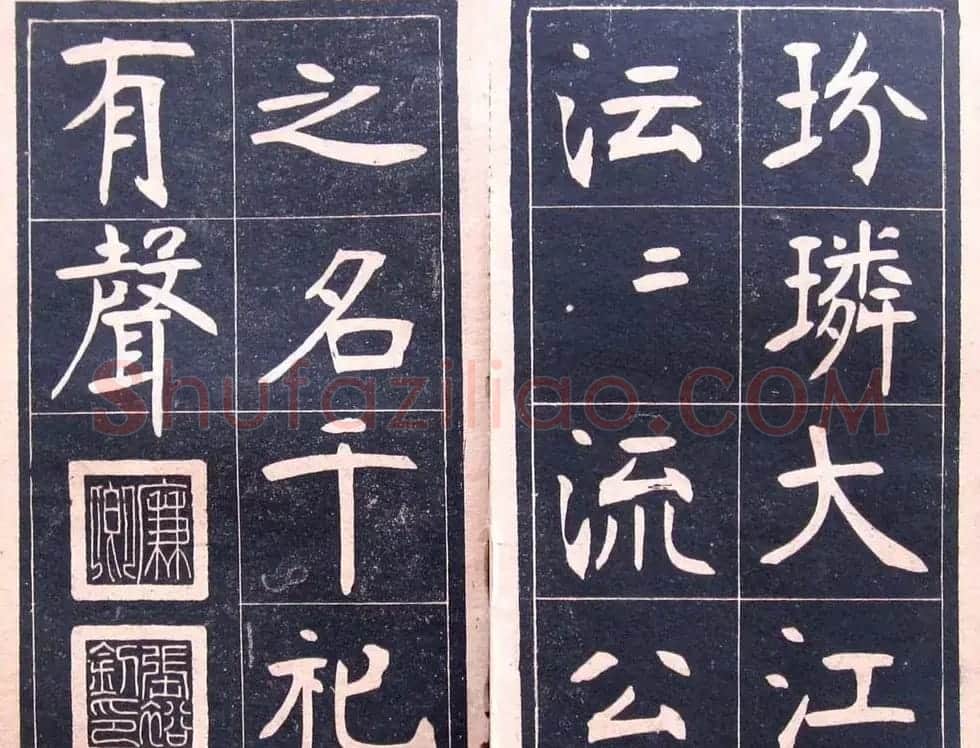 玢璘大江
沄二流公
之名千祀
有聲
廉卿
張裕
釗印
Shufaziliao.COM